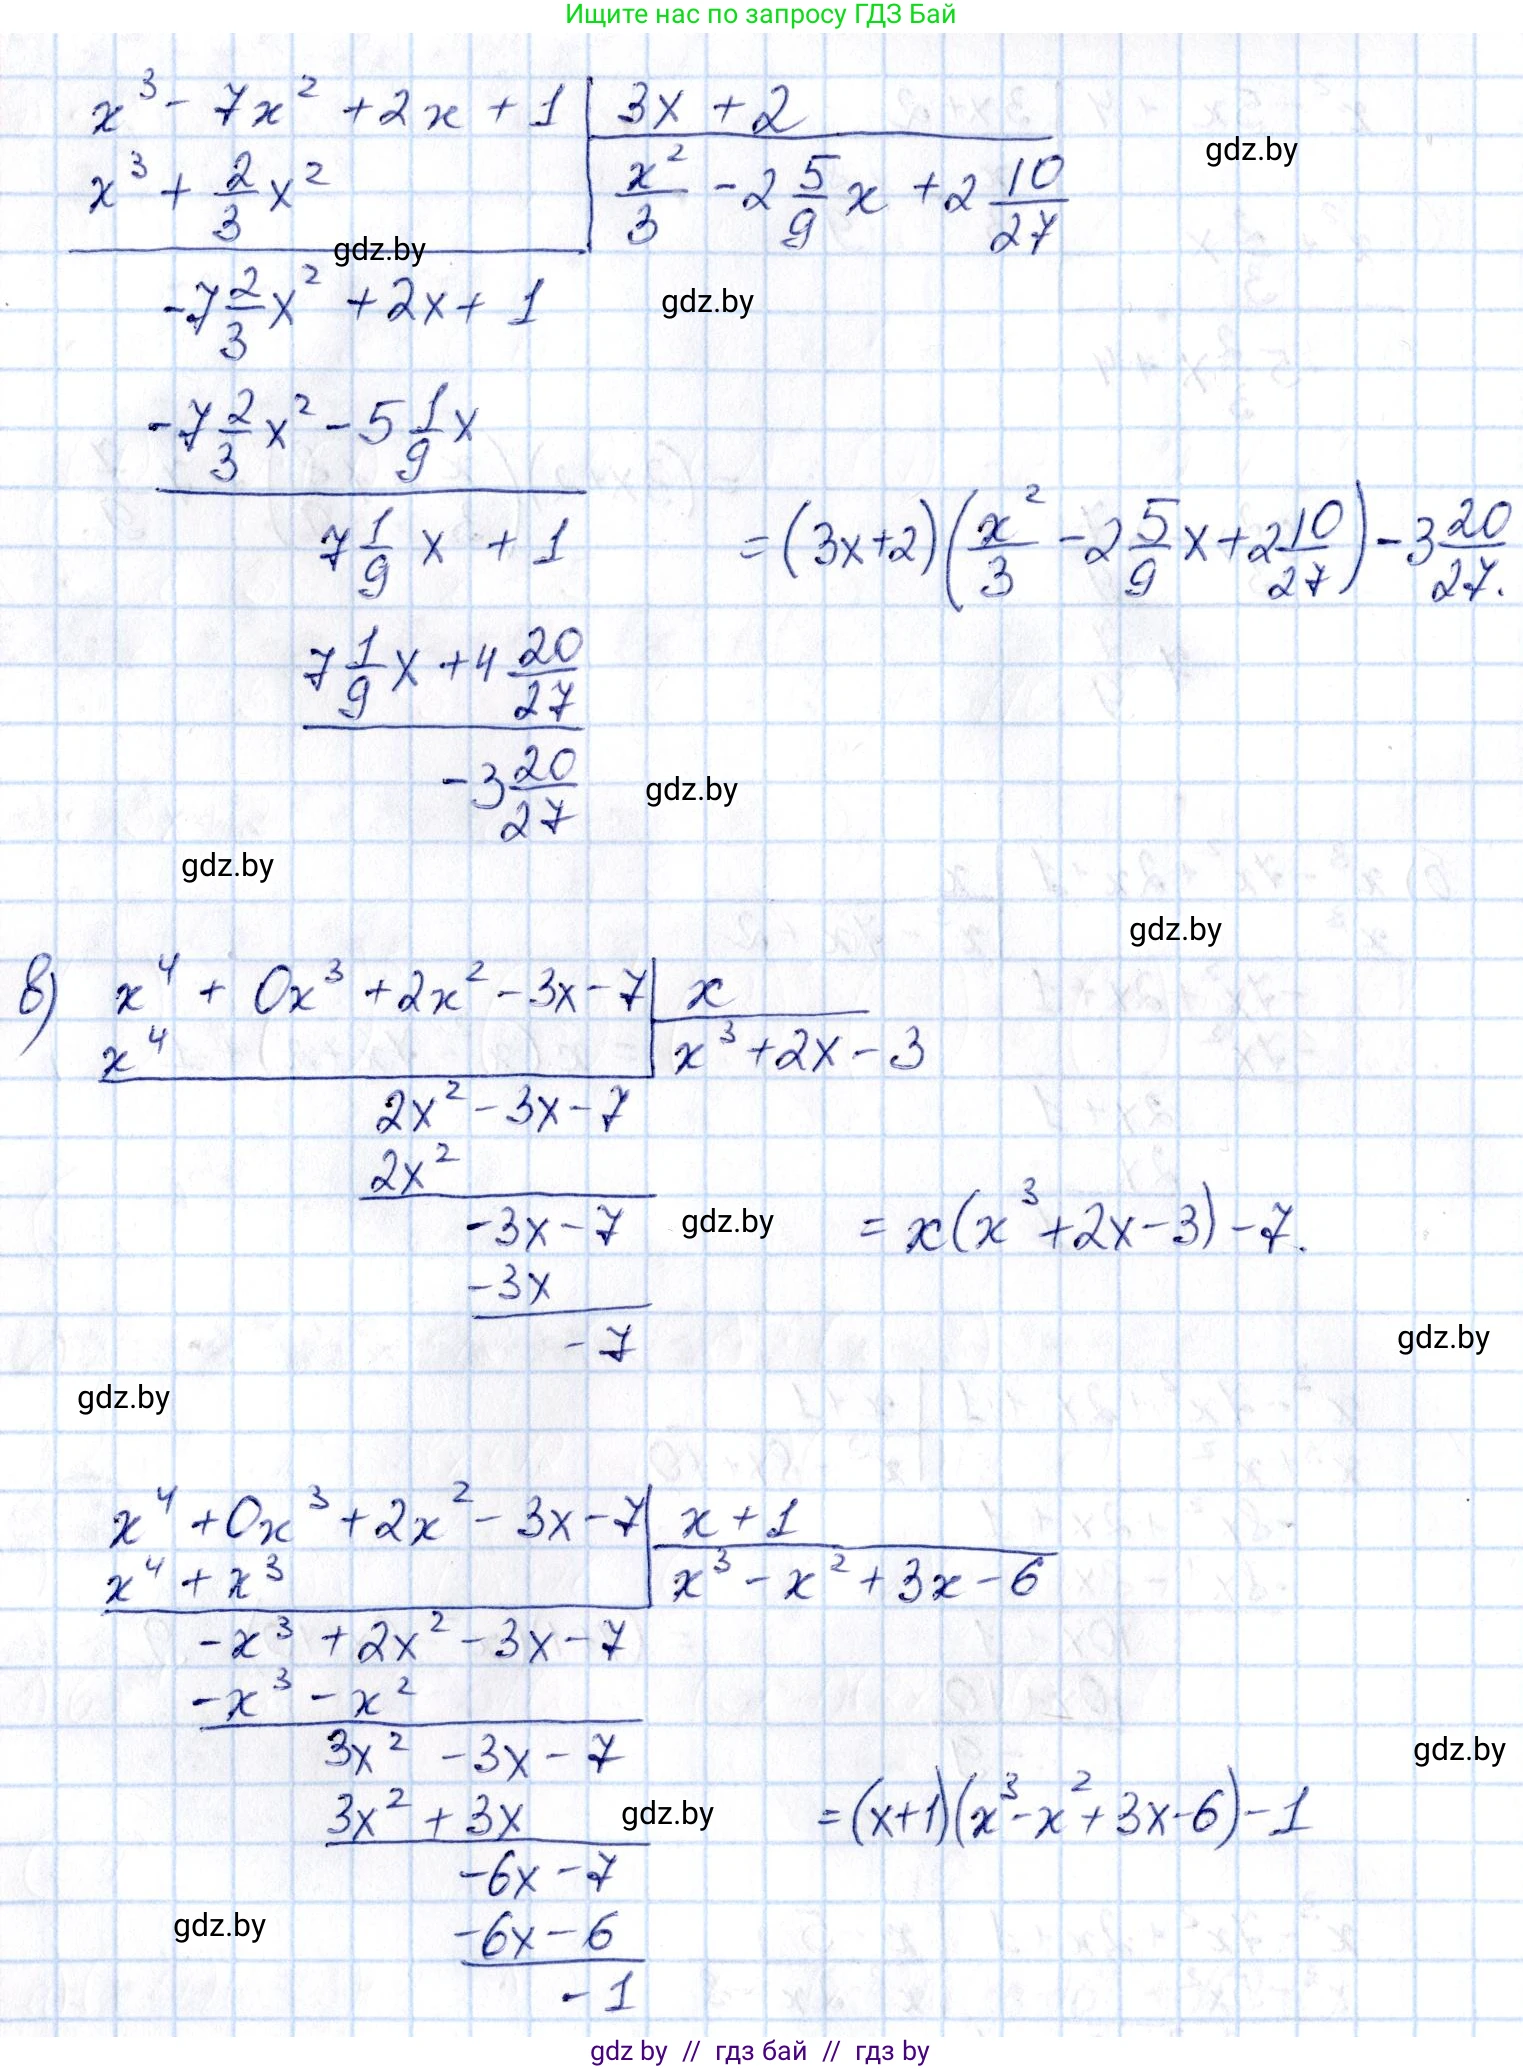 Ищите нас по запросу ГДЗ Бай
x³ - 7x² + 2x + 1 | 3x + 2
x³ + 2/3 x² | x²/3 - 2 5/9 x + 2 10/27
gdz.by
gdz.by
-7 2/3 x² + 2x + 1
gdz.by
-7 2/3 x² - 5 1/9 x
7 1/9 x + 1
= (3x+2)(x²/3 - 2 5/9 x + 2 10/27) - 3 20/27.
7 1/9 x + 4 20/27
-3 20/27
gdz.by
gdz.by
gdz.by
в) x⁴ + 0x³ + 2x² - 3x - 7 | x
x⁴ | x³ + 2x - 3
2x² - 3x - 7
2x²
-3x - 7
gdz.by
= x(x³ + 2x - 3) - 7.
-3x
-7
gdz.by
gdz.by
x⁴ + 0x³ + 2x² - 3x - 7 | x + 1
x⁴ + x³ | x³ - x² + 3x - 6
-x³ + 2x² - 3x - 7
-x³ - x²
3x² - 3x - 7
gdz.by
3x² + 3x
gdz.by
= (x+1)(x³ - x² + 3x - 6) - 1
-6x - 7
gdz.by
-6x - 6
-1
gdz by // гдз бай // гдз by